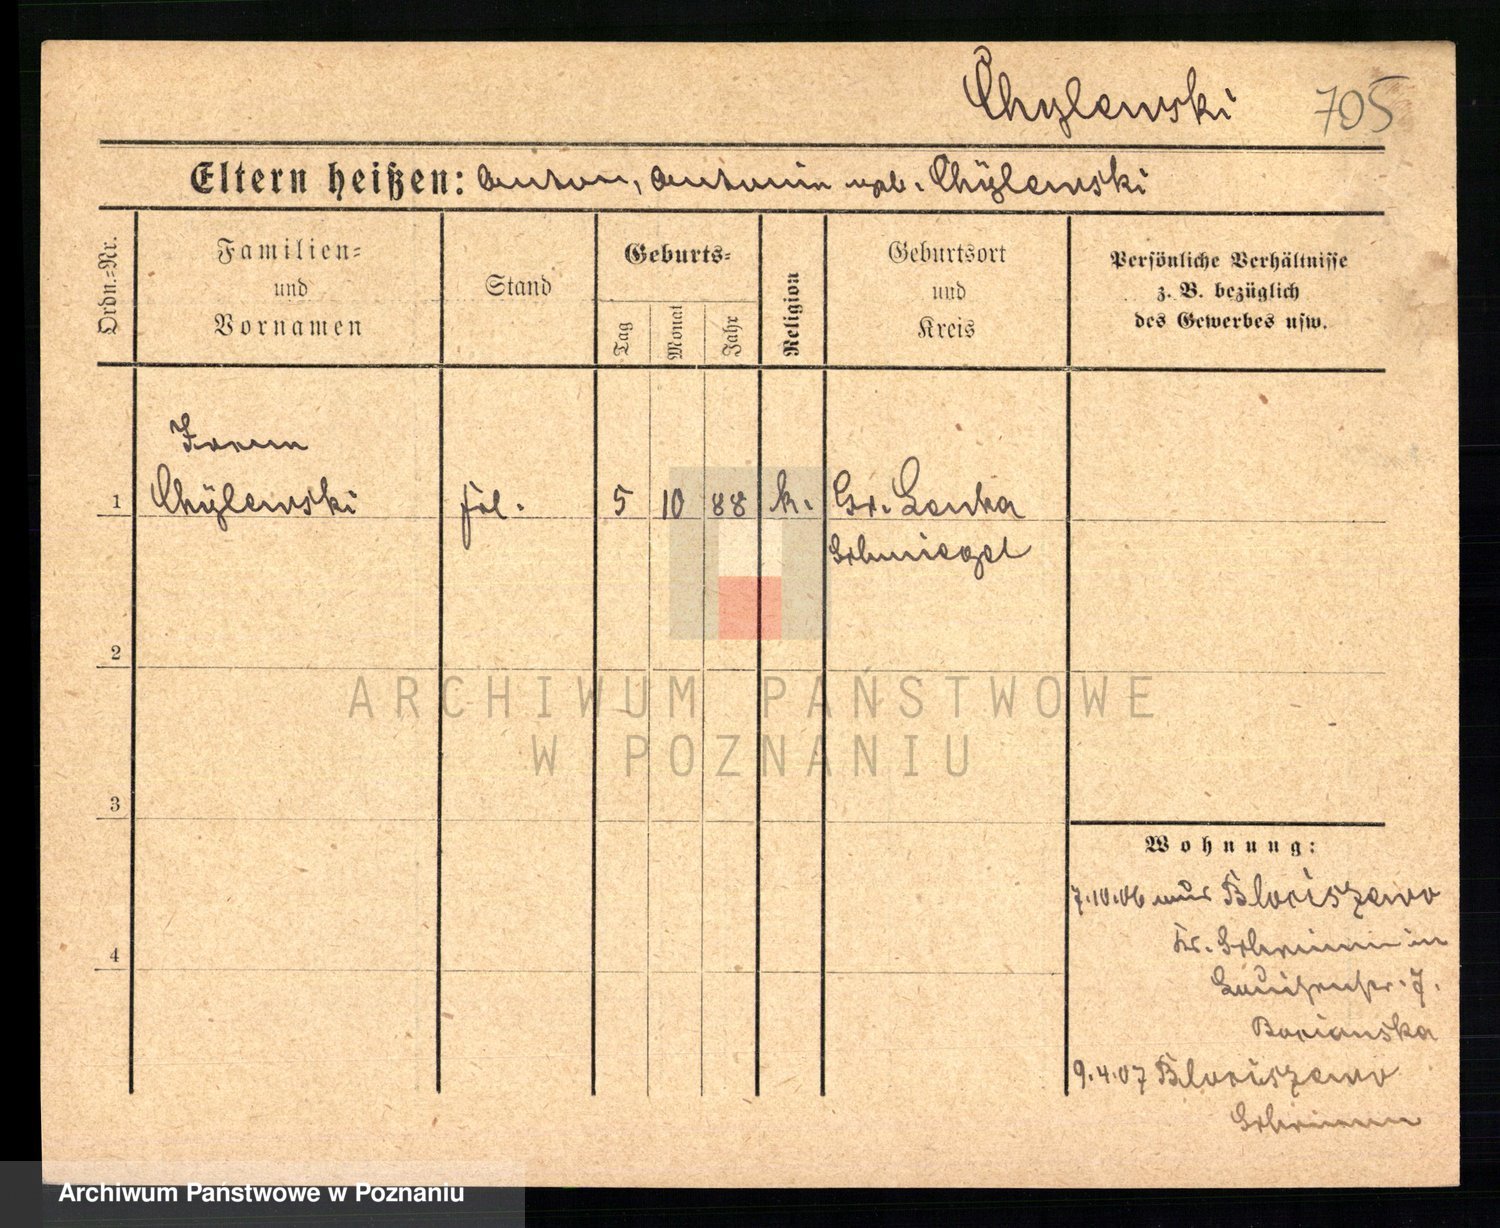 Chylewski 705
Eltern heißen: Anton, Antonin geb. Chÿlewski
Ordn.-Nr.
Familien-
und
Vornamen
Stand
Geburts-
Tag
Monat
Jahr
Religion
Geburtsort
und
Kreis
Persönliche Verhältnisse
z. B. bezüglich
des Gewerbes usw.
1 Chÿlewski
5 10 88 k. Gr. Lenka
Schmiegel
2
3
4
Wohnung:
7.10.06 aus Blociszewo
Kr. Schrimm in
Louisenstr. 7.
9.4.07 Blociszewo
Schrimm
ARCHIWUM PAŃSTWOWE
W POZNANIU
Archiwum Państwowe w Poznaniu